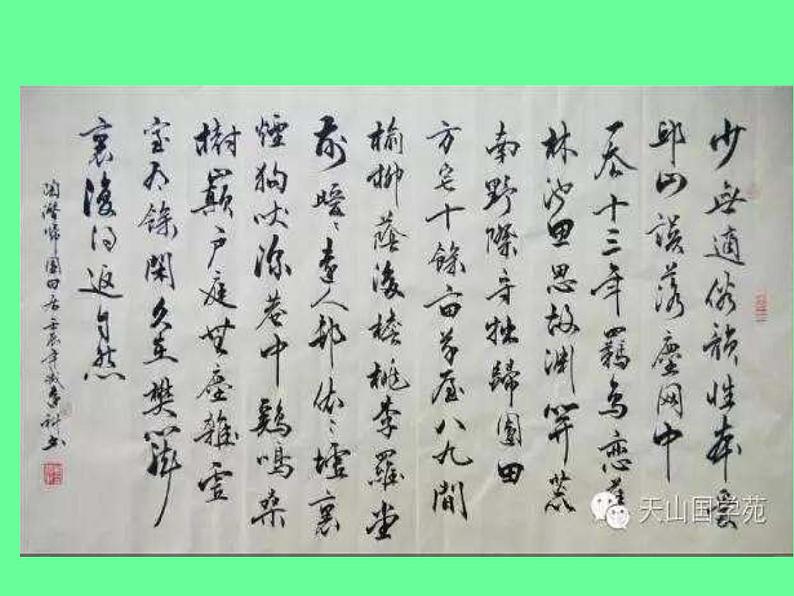 少無適俗韻性本愛
邱山誤落塵网中
一去十三年羈鳥戀舊
林池魚思故淵開荒
南野際守拙歸園田
方宅十餘畝草屋八九間
榆柳蔭後檐桃李羅堂
前曖〻遠人邨依〻墟裏
煙狗吠深巷中鷄鳴桑
樹巔户庭無塵雜虛
室有餘閑久在樊籠
裏復得返自然
陶潛歸園田居壬辰年書
天山国学苑